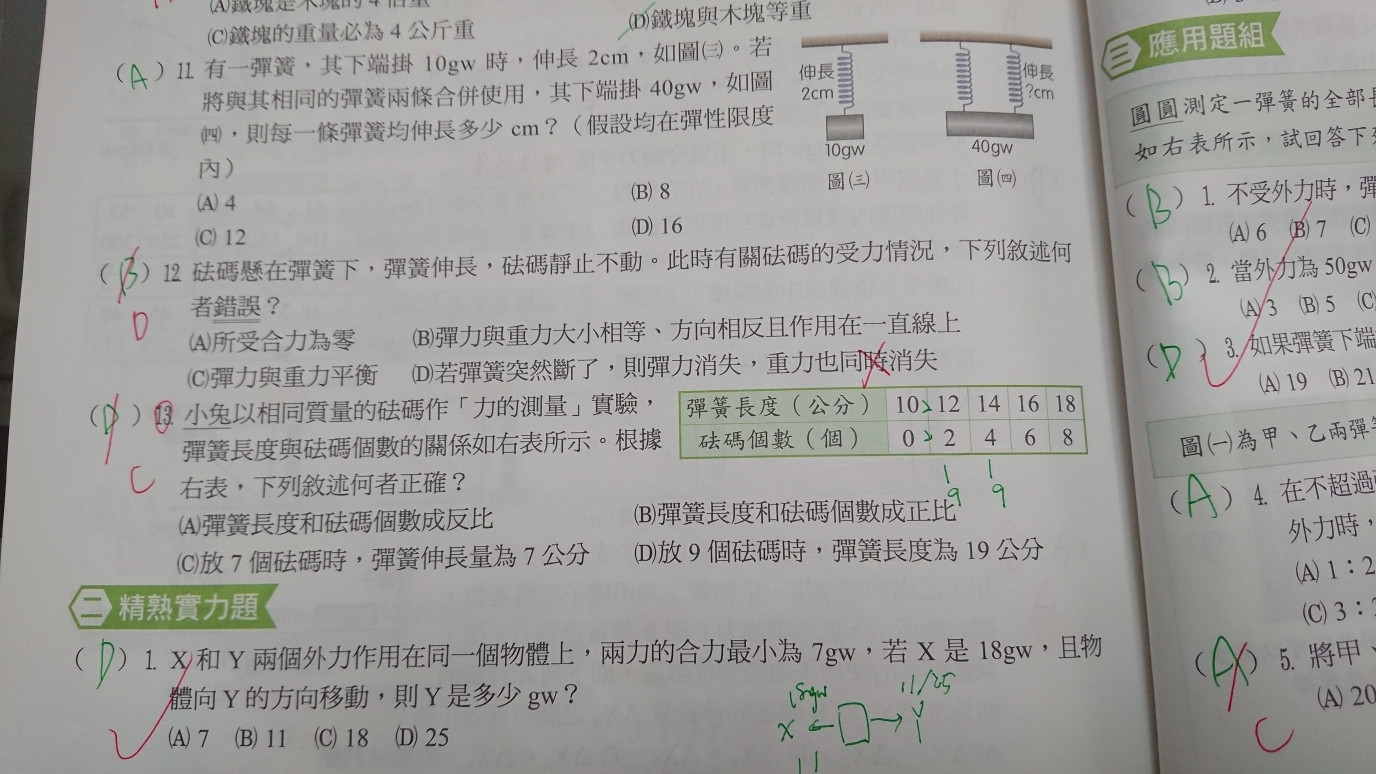 (C)鐵塊的重量必為 4 公斤重
(D)鐵塊與木塊等重
(A) 11. 有一彈簧，其下端掛 10gw 時，伸長 2cm，如圖㈢。若
將與其相同的彈簧兩條合併使用，其下端掛 40gw，如圖
㈣，則每一條彈簧均伸長多少 cm？（假設均在彈性限度
內）
(A) 4
(B) 8
(C) 12
(D) 16
伸長
2cm
10gw
圖㈢
伸長
?cm
40gw
圖㈣
(B) 12. 砝碼懸在彈簧下，彈簧伸長，砝碼靜止不動。此時有關砝碼的受力情況，下列敘述何
者錯誤？
D
(A)所受合力為零 (B)彈力與重力大小相等、方向相反且作用在一直線上
(C)彈力與重力平衡 (D)若彈簧突然斷了，則彈力消失，重力也同時消失
(D) 13. 小兔以相同質量的砝碼作「力的測量」實驗，
彈簧長度與砝碼個數的關係如右表所示。根據
C
右表，下列敘述何者正確？
彈簧長度（公分） 10 12 14 16 18
砝碼個數（個） 0 2 4 6 8
1 1
9 9
(A)彈簧長度和砝碼個數成反比 (B)彈簧長度和砝碼個數成正比
(C)放 7 個砝碼時，彈簧伸長量為 7 公分 (D)放 9 個砝碼時，彈簧長度為 19 公分
二 精熟實力題
(D) 1. X 和 Y 兩個外力作用在同一個物體上，兩力的合力最小為 7gw，若 X 是 18gw，且物
體向 Y 的方向移動，則 Y 是多少 gw？
(A) 7 (B) 11 (C) 18 (D) 25
18gw 11/25
X Y
11
三 應用題組
圓圓測定一彈簧的全部
如右表所示，試回答下
(B) 1. 不受外力時，
(A) 6 (B) 7 (C)
(B) 2. 當外力為 50gw
(A) 3 (B) 5 (C
(D) 3. 如果彈簧下端
(A) 19 (B) 21
圖㈠為甲、乙兩彈
(A) 4. 在不超過
外力時，
(A) 1：2
(C) 3：
(A) 5. 將甲、
(A) 20
C